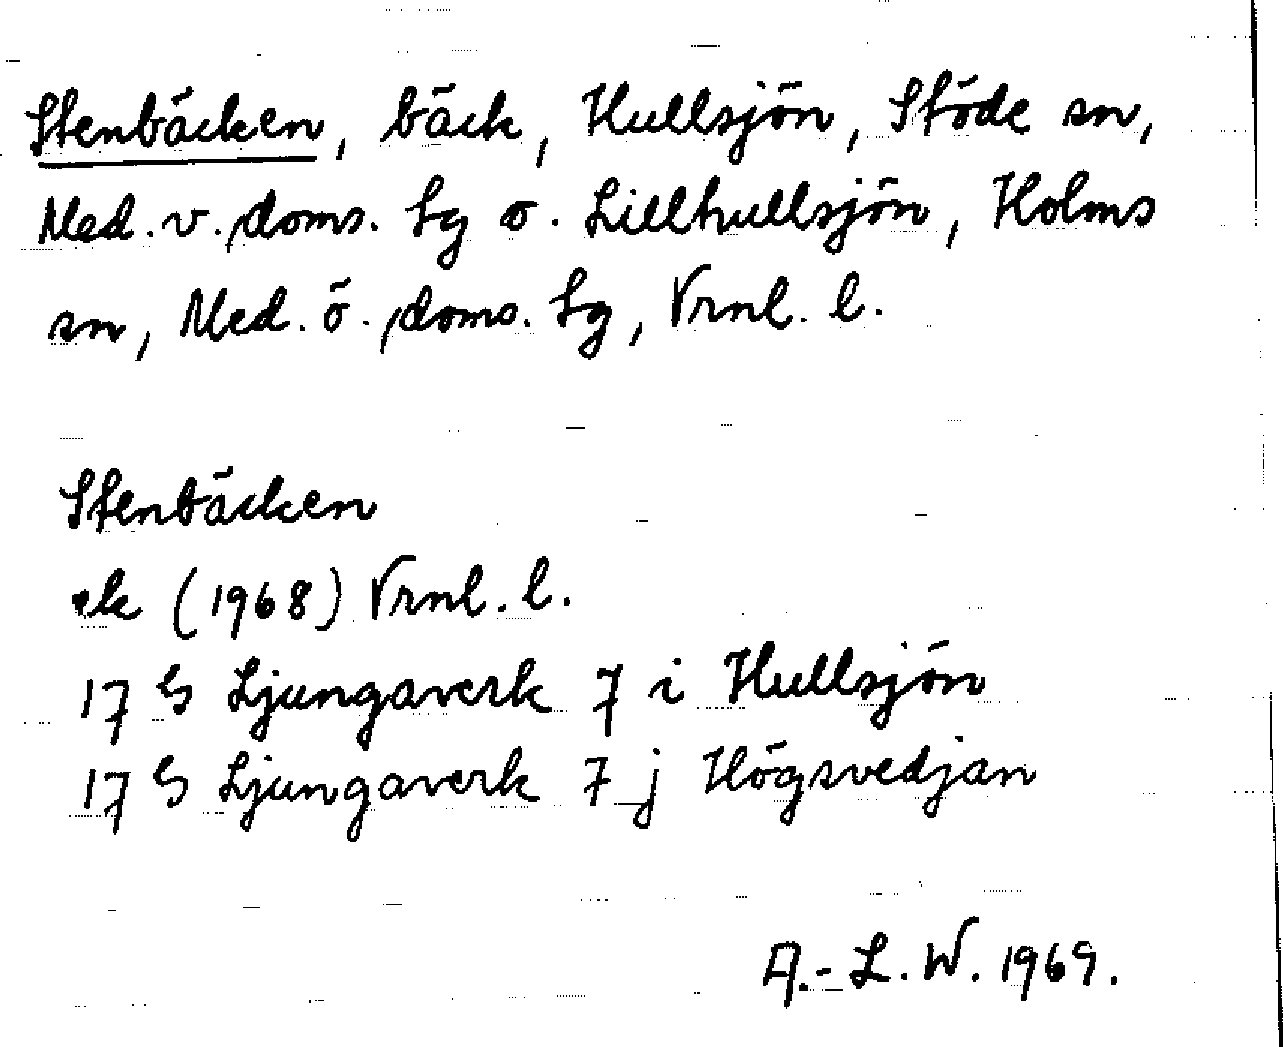 Stenbäcken, bäck, Hullsjön, Stöde sn,
Med. v. doms. hg o. Lillhullsjön, Holms
sn, Med. ö. doms. hg, Vrnl. l.
Stenbäcken
ek (1968) Vrnl. l.
17 G Ljungaverk 7 i Hullsjön
17 G Ljungaverk 7 j Högsvedjan
A.-L. W. 1969.